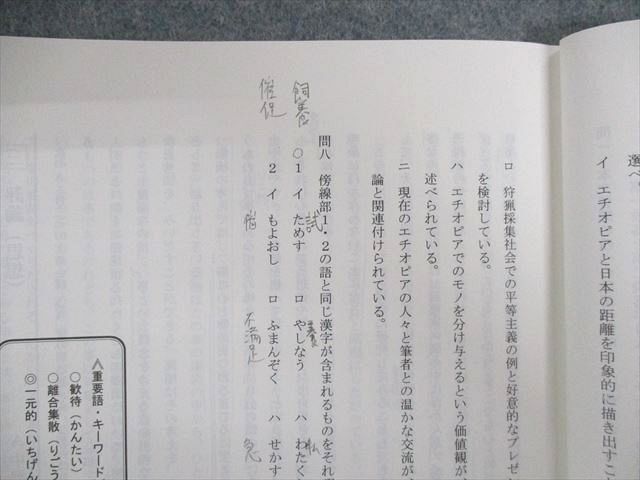 選べ。
イ エチオピアと日本の距離を印象的に描き出すこ
ロ 狩猟採集社会での平等主義の例と好意的なプレゼン
を検討している。
ハ エチオピアでのモノを分け与えるという価値観が、
述べられている。
ニ 現在のエチオピアの人々と筆者との温かな交流が、
論と関連付けられている。
問八 傍線部1・2の語と同じ漢字が含まれるものをそれぞ
飼養
○1 イ ためす ロ やしなう ハ わたく
試 養 私
催促
2 イ もよおし ロ ふまんぞく ハ せかす
催 不満足 急
≪重要語・キーワード
○歓待（かんたい）
○離合集散（りごう
◎一元的（いちげん